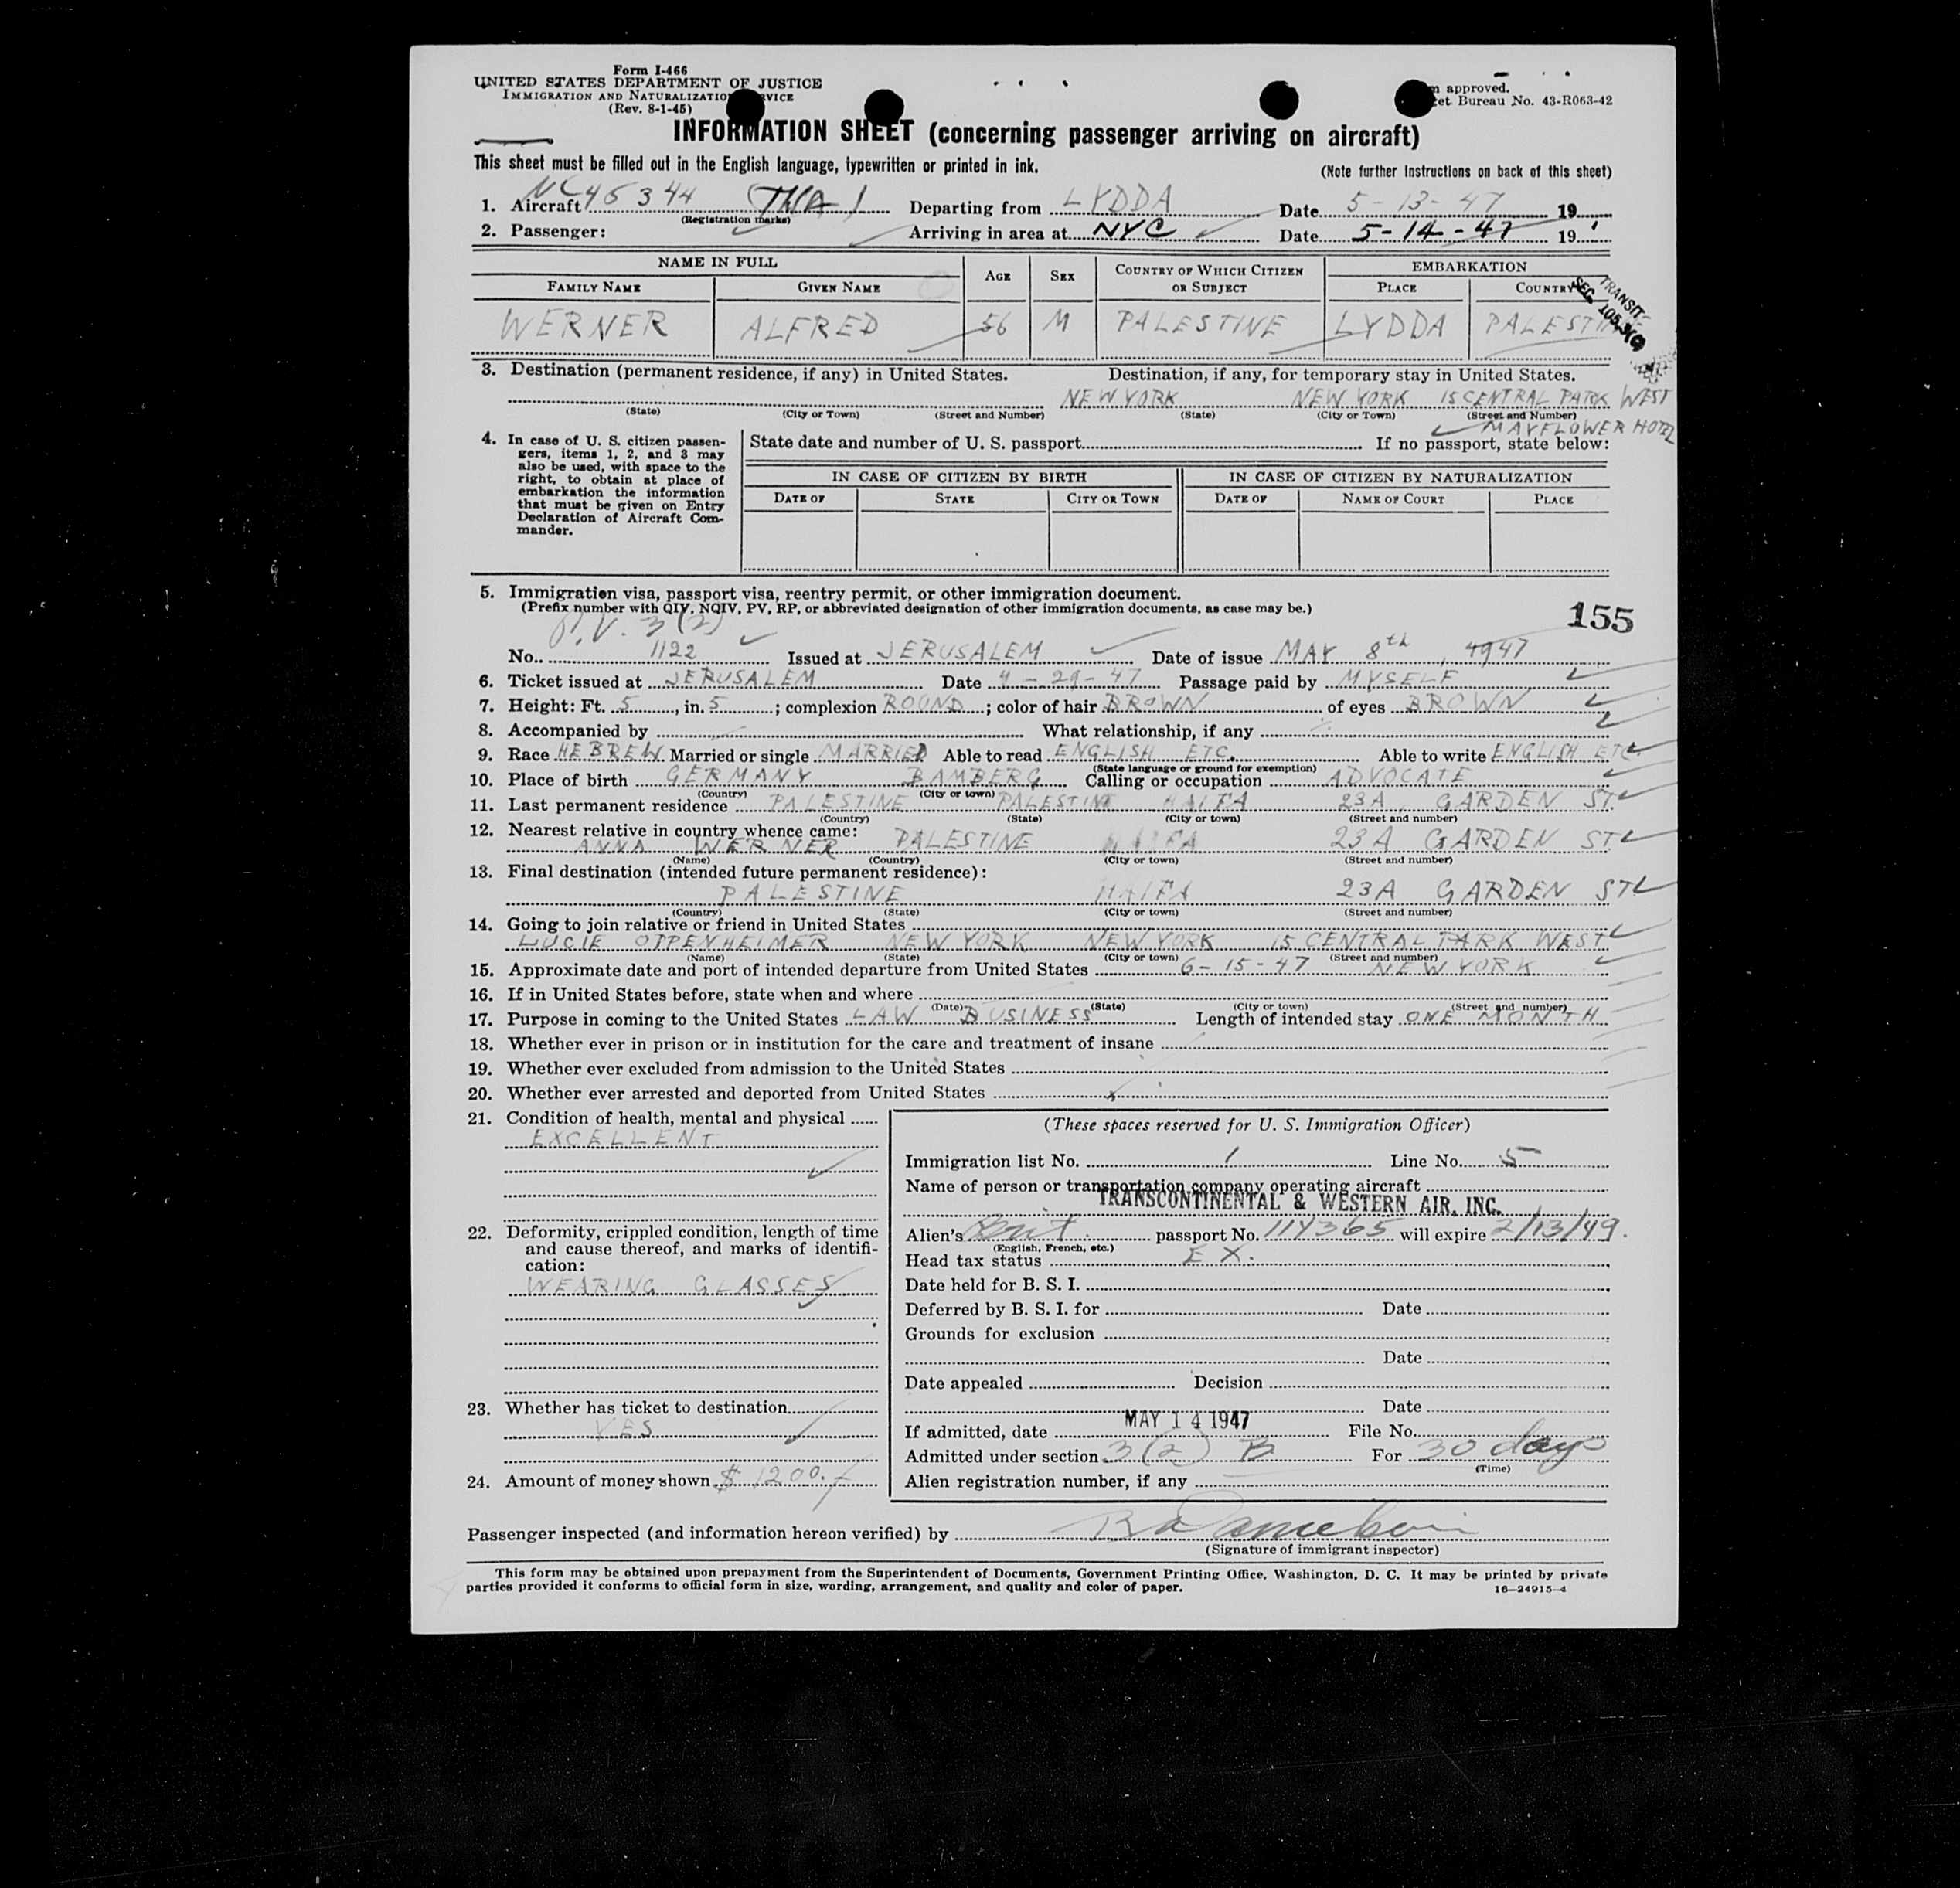 Form I-466
UNITED STATES DEPARTMENT OF JUSTICE
IMMIGRATION AND NATURALIZATION SERVICE
(Rev. 8-1-45)
approved.
et Bureau No. 43-R063-42
INFORMATION SHEET (concerning passenger arriving on aircraft)
This sheet must be filled out in the English language, typewritten or printed in ink. (Note further instructions on back of this sheet)
1. Aircraft NC45344 TWA 1 Departing from LYDDA Date 5-13-47 19
(Registration marks)
2. Passenger: Arriving in area at NYC Date 5-14-47 19
NAME IN FULL AGE SEX COUNTRY OF WHICH CITIZEN OR SUBJECT EMBARKATION
FAMILY NAME GIVEN NAME PLACE COUNTRY
TRANSIT
SEC. 105.3(
WERNER ALFRED 56 M PALESTINE LYDDA PALESTINE
3. Destination (permanent residence, if any) in United States. Destination, if any, for temporary stay in United States.
NEW YORK NEW YORK 15 CENTRAL PARK WEST
(State) (City or Town) (Street and Number) (State) (City or Town) (Street and Number)
MAYFLOWER HOTEL
4. In case of U. S. citizen passengers, items 1, 2, and 3 may also be used, with space to the right, to obtain at place of embarkation the information that must be given on Entry Declaration of Aircraft Commander.
State date and number of U. S. passport If no passport, state below:
IN CASE OF CITIZEN BY BIRTH IN CASE OF CITIZEN BY NATURALIZATION
DATE OF STATE CITY OR TOWN DATE OF NAME OF COURT PLACE
5. Immigration visa, passport visa, reentry permit, or other immigration document.
(Prefix number with QIV, NQIV, PV, RP, or abbreviated designation of other immigration documents, as case may be.)
155
P.V. 3(2)
No. 1122 Issued at JERUSALEM Date of issue MAY 8th, 1947
6. Ticket issued at JERUSALEM Date 4-29-47 Passage paid by MYSELF
7. Height: Ft. 5, in. 5; complexion ROUND; color of hair BROWN of eyes BROWN
8. Accompanied by What relationship, if any
9. Race HEBREW Married or single MARRIED Able to read ENGLISH ETC. Able to write ENGLISH ETC
(State language or ground for exemption)
10. Place of birth GERMANY BAMBERG Calling or occupation ADVOCATE
(Country) (City or town)
11. Last permanent residence PALESTINE PALESTINE HAIFA 23A, GARDEN ST.
(Country) (State) (City or town) (Street and number)
12. Nearest relative in country whence came:
ANNA WERNER PALESTINE HAIFA 23A GARDEN ST
(Name) (Country) (City or town) (Street and number)
13. Final destination (intended future permanent residence):
PALESTINE HAIFA 23A GARDEN ST
(Country) (State) (City or town) (Street and number)
14. Going to join relative or friend in United States
LUCIE OPPENHEIMER NEW YORK NEW YORK 15 CENTRAL PARK WEST
(Name) (State) (City or town) (Street and number)
15. Approximate date and port of intended departure from United States 6-15-47 NEW YORK
16. If in United States before, state when and where
(Date) (State) (City or town) (Street and number)
17. Purpose in coming to the United States LAW BUSINESS Length of intended stay ONE MONTH
18. Whether ever in prison or in institution for the care and treatment of insane
19. Whether ever excluded from admission to the United States
20. Whether ever arrested and deported from United States
21. Condition of health, mental and physical
EXCELLENT
22. Deformity, crippled condition, length of time and cause thereof, and marks of identification:
WEARING GLASSES
23. Whether has ticket to destination
YES
24. Amount of money shown $ 1200.-
(These spaces reserved for U. S. Immigration Officer)
Immigration list No. 1 Line No. 5
Name of person or transportation company operating aircraft
TRANSCONTINENTAL & WESTERN AIR, INC.
Alien's Brit. passport No. 114365 will expire 2/13/49.
(English, French, etc.)
Head tax status EX.
Date held for B. S. I.
Deferred by B. S. I. for Date
Grounds for exclusion
Date
Date appealed Decision
Date
If admitted, date MAY 14 1947 File No.
Admitted under section 3(2) B For 30 days
(Time)
Alien registration number, if any
Passenger inspected (and information hereon verified) by
(Signature of immigrant inspector)
This form may be obtained upon prepayment from the Superintendent of Documents, Government Printing Office, Washington, D. C. It may be printed by private
parties provided it conforms to official form in size, wording, arrangement, and quality and color of paper. 16—24915-4